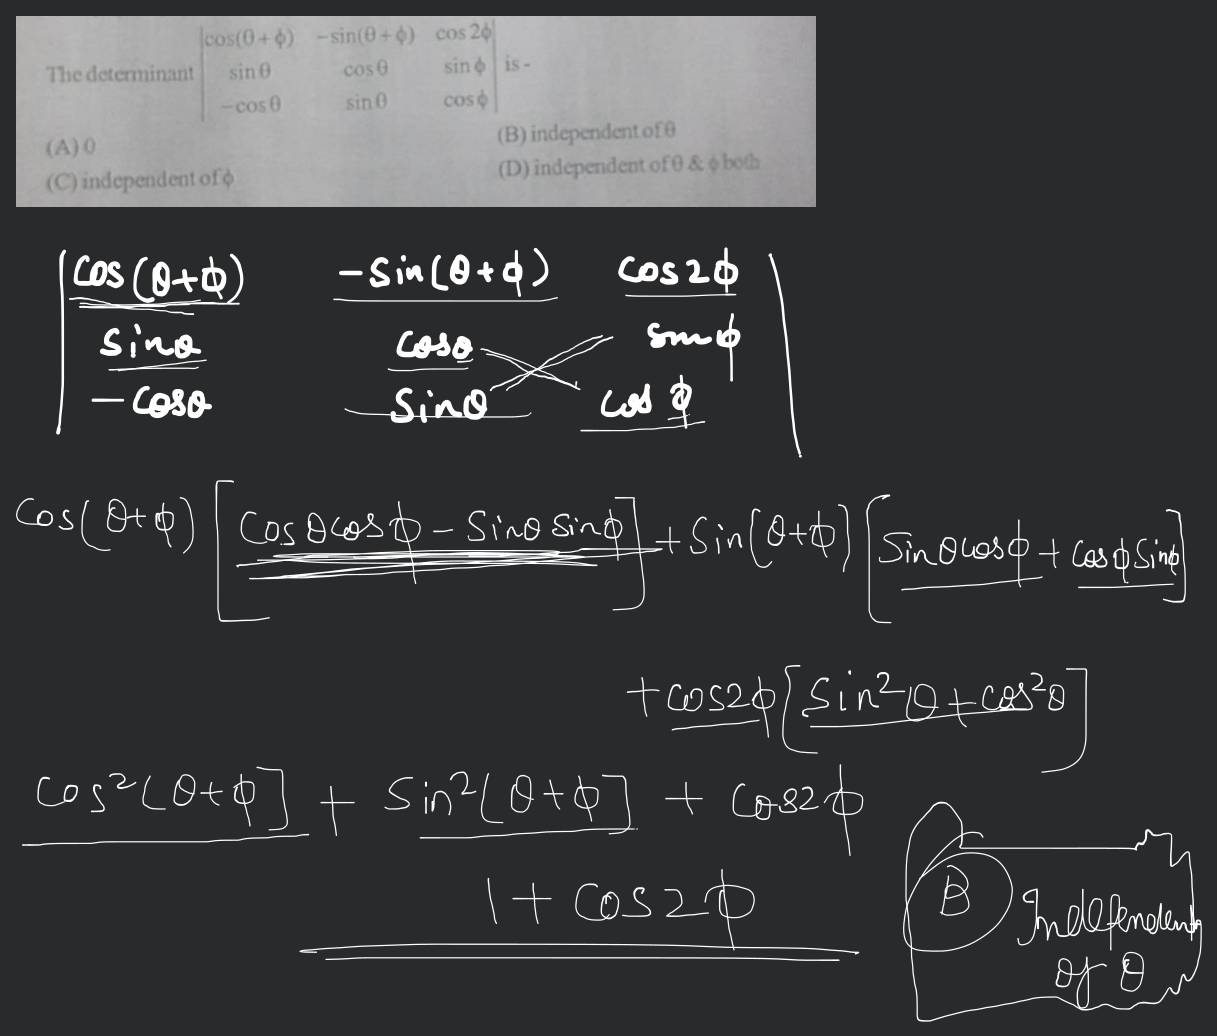 The determinant |cos(θ+ϕ) -sin(θ+ϕ) cos 2ϕ|
|sin θ cos θ sin ϕ| is -
|-cos θ sin θ cos ϕ|
(A) 0
(B) independent of θ
(C) independent of ϕ
(D) independent of θ & ϕ both
|cos(θ+ϕ) -sin(θ+ϕ) cos2ϕ|
|sinθ cosθ sinϕ|
|-cosθ sinθ cosϕ|
cos(θ+ϕ) [cosθcosϕ - sinθ sinϕ] + sin(θ+ϕ) [sinθcosϕ + cosϕ sinϕ]
+ cos2ϕ [sin²θ + cos²θ]
cos²(θ+ϕ] + sin²(θ+ϕ] + cos2ϕ
1 + cos2ϕ
B Independent
of θ